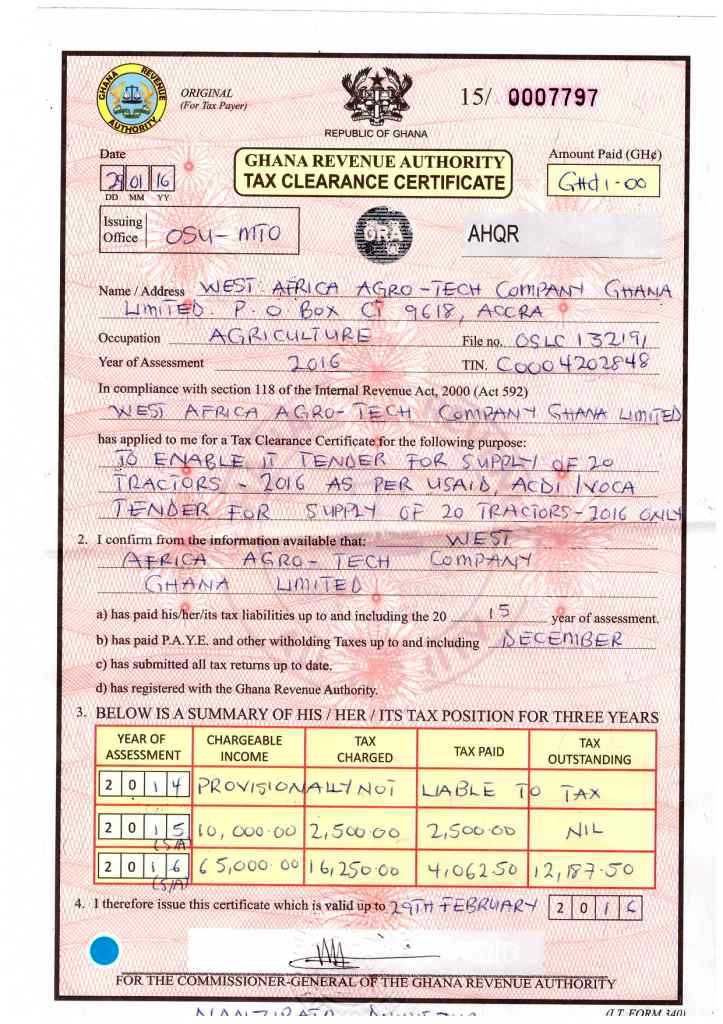 GHANA REVENUE AUTHORITY
ORIGINAL
(For Tax Payer)
REPUBLIC OF GHANA
15/ 0007797
Date
29 01 16
DD MM YY
GHANA REVENUE AUTHORITY
TAX CLEARANCE CERTIFICATE
Amount Paid (GH¢)
GHd 1-00
Issuing
Office OSU-MTO
GRA
AHQR
Name / Address WEST AFRICA AGRO-TECH COMPANY GHANA
LIMITED. P.O BOX CT 9618, ACCRA
Occupation AGRICULTURE File no. OSLC 132191
Year of Assessment 2016 TIN. C0004202848
In compliance with section 118 of the Internal Revenue Act, 2000 (Act 592)
WEST AFRICA AGRO-TECH COMPANY GHANA LIMITED
has applied to me for a Tax Clearance Certificate for the following purpose:
TO ENABLE IT TENDER FOR SUPPLY OF 20
TRACTORS - 2016 AS PER USAID, ACDI/VOCA
TENDER FOR SUPPLY OF 20 TRACTORS-2016 ONLY
2. I confirm from the information available that: WEST
AFRICA AGRO-TECH COMPANY
GHANA LIMITED
a) has paid his/her/its tax liabilities up to and including the 20 15 year of assessment.
b) has paid P.A.Y.E. and other witholding Taxes up to and including DECEMBER
c) has submitted all tax returns up to date.
d) has registered with the Ghana Revenue Authority.
3. BELOW IS A SUMMARY OF HIS / HER / ITS TAX POSITION FOR THREE YEARS
YEAR OF ASSESSMENT CHARGEABLE INCOME TAX CHARGED TAX PAID TAX OUTSTANDING
2014 PROVISIONALLY NOT LIABLE TO TAX
2015 (S/A) 10,000.00 2,500.00 2,500.00 NIL
2016 (S/A) 65,000.00 16,250.00 4,062.50 12,187.50
4. I therefore issue this certificate which is valid up to 29TH FEBRUARY 2016
FOR THE COMMISSIONER-GENERAL OF THE GHANA REVENUE AUTHORITY
(I.T. FORM 340)